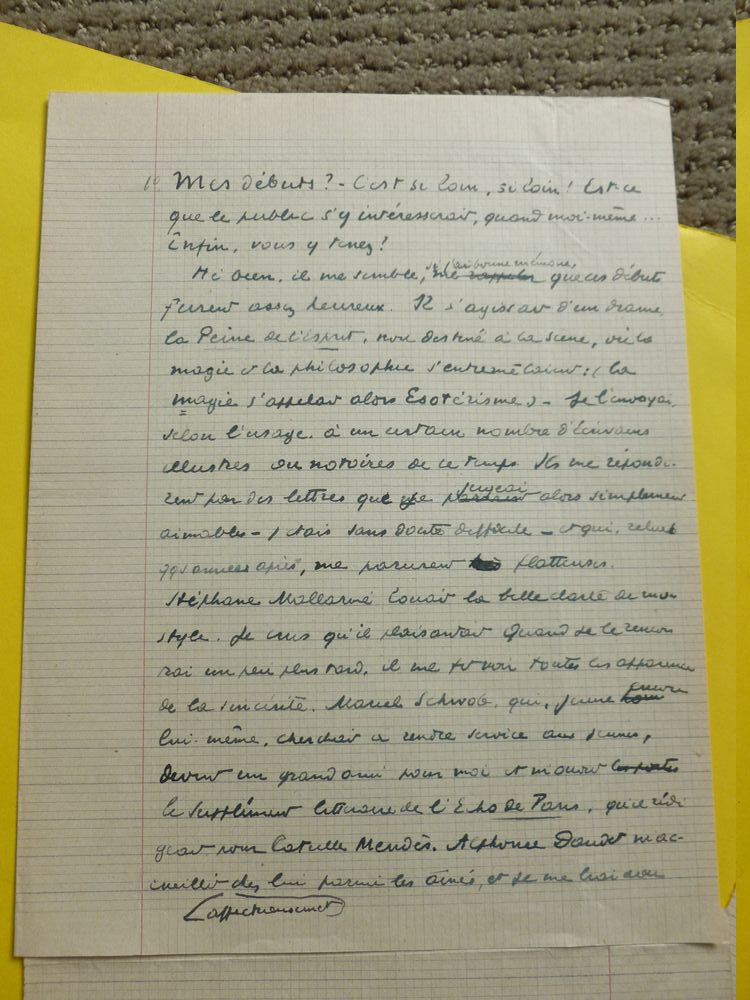 Mes débuts? - C'est si loin, si loin! Est-ce
que le public s'y intéresserait, quand moi-même...
Enfin, vous y tenez!
si j'ai bonne mémoire,
Hé bien, il me semble, que ces débuts
furent assez heureux. Il s'agissait d'un drame,
la Peine de l'Esprit, non destiné à la scène, où la
magie et la philosophie s'entremêlaient: (la
magie s'appelait alors Esotérisme) - Je l'envoyai,
selon l'usage, à un certain nombre d'écrivains
illustres ou notoires de ce temps. Ils me répondi-
jugeai
rent par des lettres que je alors simplement
aimables - j'étais sans doute difficile - et qui, relues
qqs années après, me parurent flatteuses.
Stéphane Mallarmé louait la belle clarté de mon
style. Je crus qu'il plaisantait. Quand je le rencon
trai un peu plus tard, il me fit voir toutes les apparences
de la sincérité. Marcel Schwob, qui, jeune encore
lui-même, cherchait à rendre service aux jeunes,
devint un grand ami pour moi et m'ouvrit les portes
le supplément littéraire de l'Echo de Paris, qu'il rédi
geait pour Catulle Mendès. Alphonse Daudet m'ac-
cueillit chez lui parmi les aînés, et je me liai avec
(affectueusement)